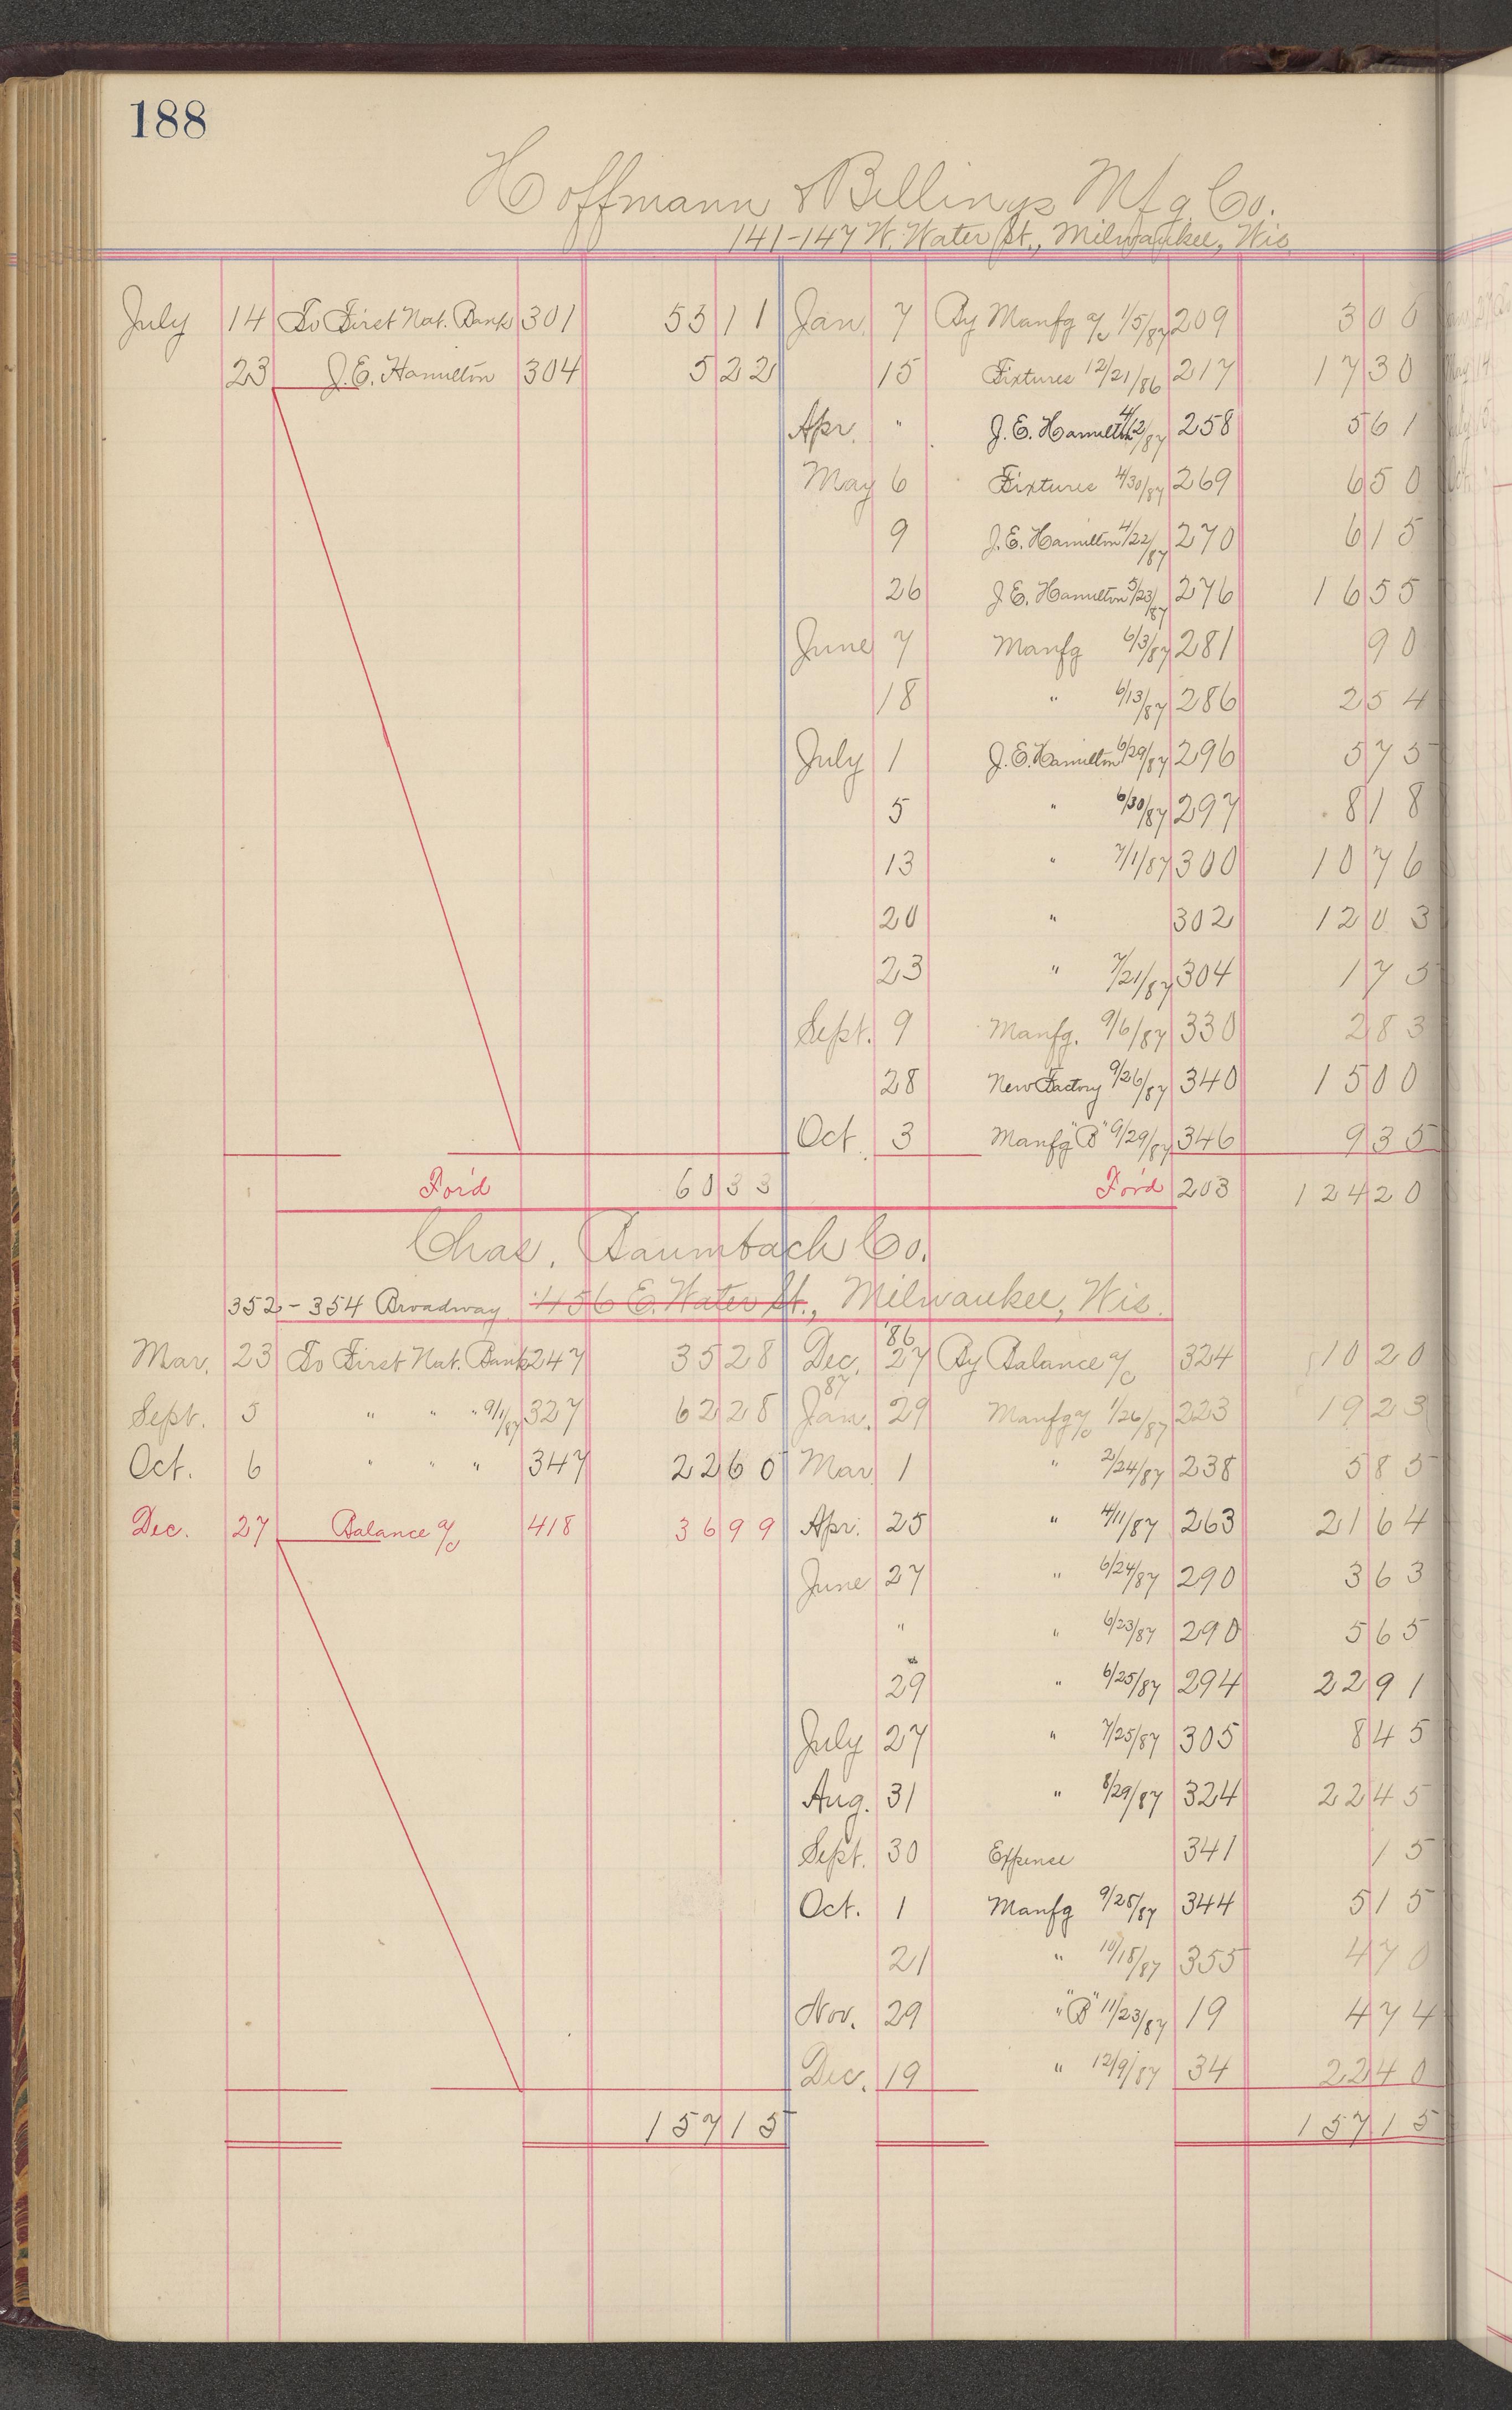 188
Hoffmann & Billings Mfg. Co.
141-147 W. Water St., Milwaukee, Wis
July 14 To First Nat. Bank 301 53 11 Jan. 7 By Manfg a/c 1/5/87 209 3 06
23 J.E. Hamilton 304 5 22 15 Fixtures 12/21/86 217 17 30
Apr. " J.E. Hamilton 4/12/87 258 5 61
May 6 Fixtures 4/30/87 269 6 50
9 J.E. Hamilton 4/22/87 270 6 15
26 J.E. Hamilton 5/23/87 276 16 55
June 7 Manfg 6/3/87 281 90
18 " 6/13/87 286 2 54
July 1 J.E. Hamilton 6/29/87 296 5 75
5 " 6/30/87 297 8 18
13 " 7/1/87 300 10 76
20 " 302 12 03
23 " 7/21/87 304 1 75
Sept. 9 Manfg. 9/6/87 330 2 83
28 New Factory 9/26/87 340 15 00
Oct. 3 Manfg "B" 9/29/87 346 9 35
For'd 60 33 For'd 203 124 20
Chas. Baumbach Co.
352-354 Broadway 456 E. Water St., Milwaukee, Wis.
Mar. 23 To First Nat. Bank 247 35 28 Dec. '86 27 By Balance a/c 324 10 20
Sept. 5 " " " 9/1/87 327 62 28 Jan. 87 29 Manfg a/c 1/26/87 223 19 23
Oct. 6 " " " 347 22 60 Mar 1 " 2/24/87 238 5 85
Dec. 27 Balance a/c 418 36 99 Apr. 25 " 4/11/87 263 21 64
June 27 " 6/24/87 290 3 63
" " 6/23/87 290 5 65
29 " 6/25/87 294 22 91
July 27 " 7/25/87 305 8 45
Aug. 31 " 8/29/87 324 22 45
Sept. 30 Expense 341 15
Oct. 1 Manfg 9/28/87 344 5 15
21 " 10/18/87 355 4 70
Nov. 29 " "B" 11/23/87 19 4 74
Dec. 19 " 12/9/87 34 22 40
157 15 157 15